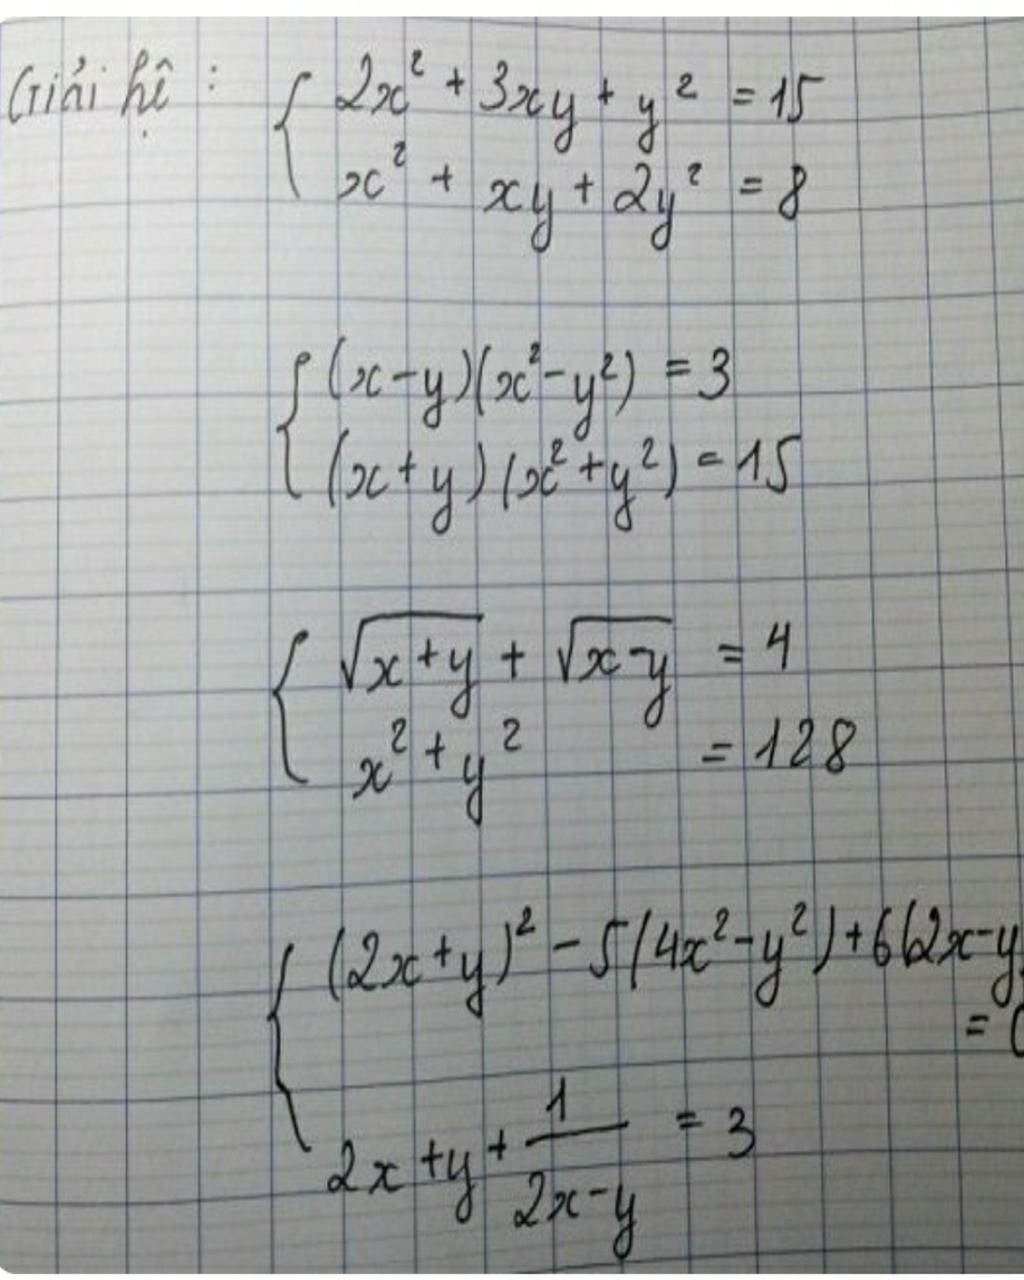 Giải hệ : { 2x² + 3xy + y² = 15
x² + xy + 2y² = 8
{ (x-y)(x²-y²) = 3
(x+y)(x²+y²) = 15
{ √(x+y) + √(x-y) = 4
x² + y² = 128
{ (2x+y)² - 5(4x²-y²)+6(2x-y
= 0
2x +y + 1/(2x-y) = 3